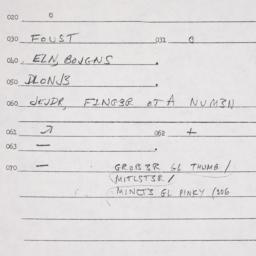 020 o
030 FOUST 031 o
040 EZN, BOJGNS .
050 DLONJ3 .
060 JEJDR, FINGER OT A NUMEN
061 ↗ 062 +
063 —
070 — GROBER GL THUMB /
MITLSTER /
MINCTE GL PINKY /